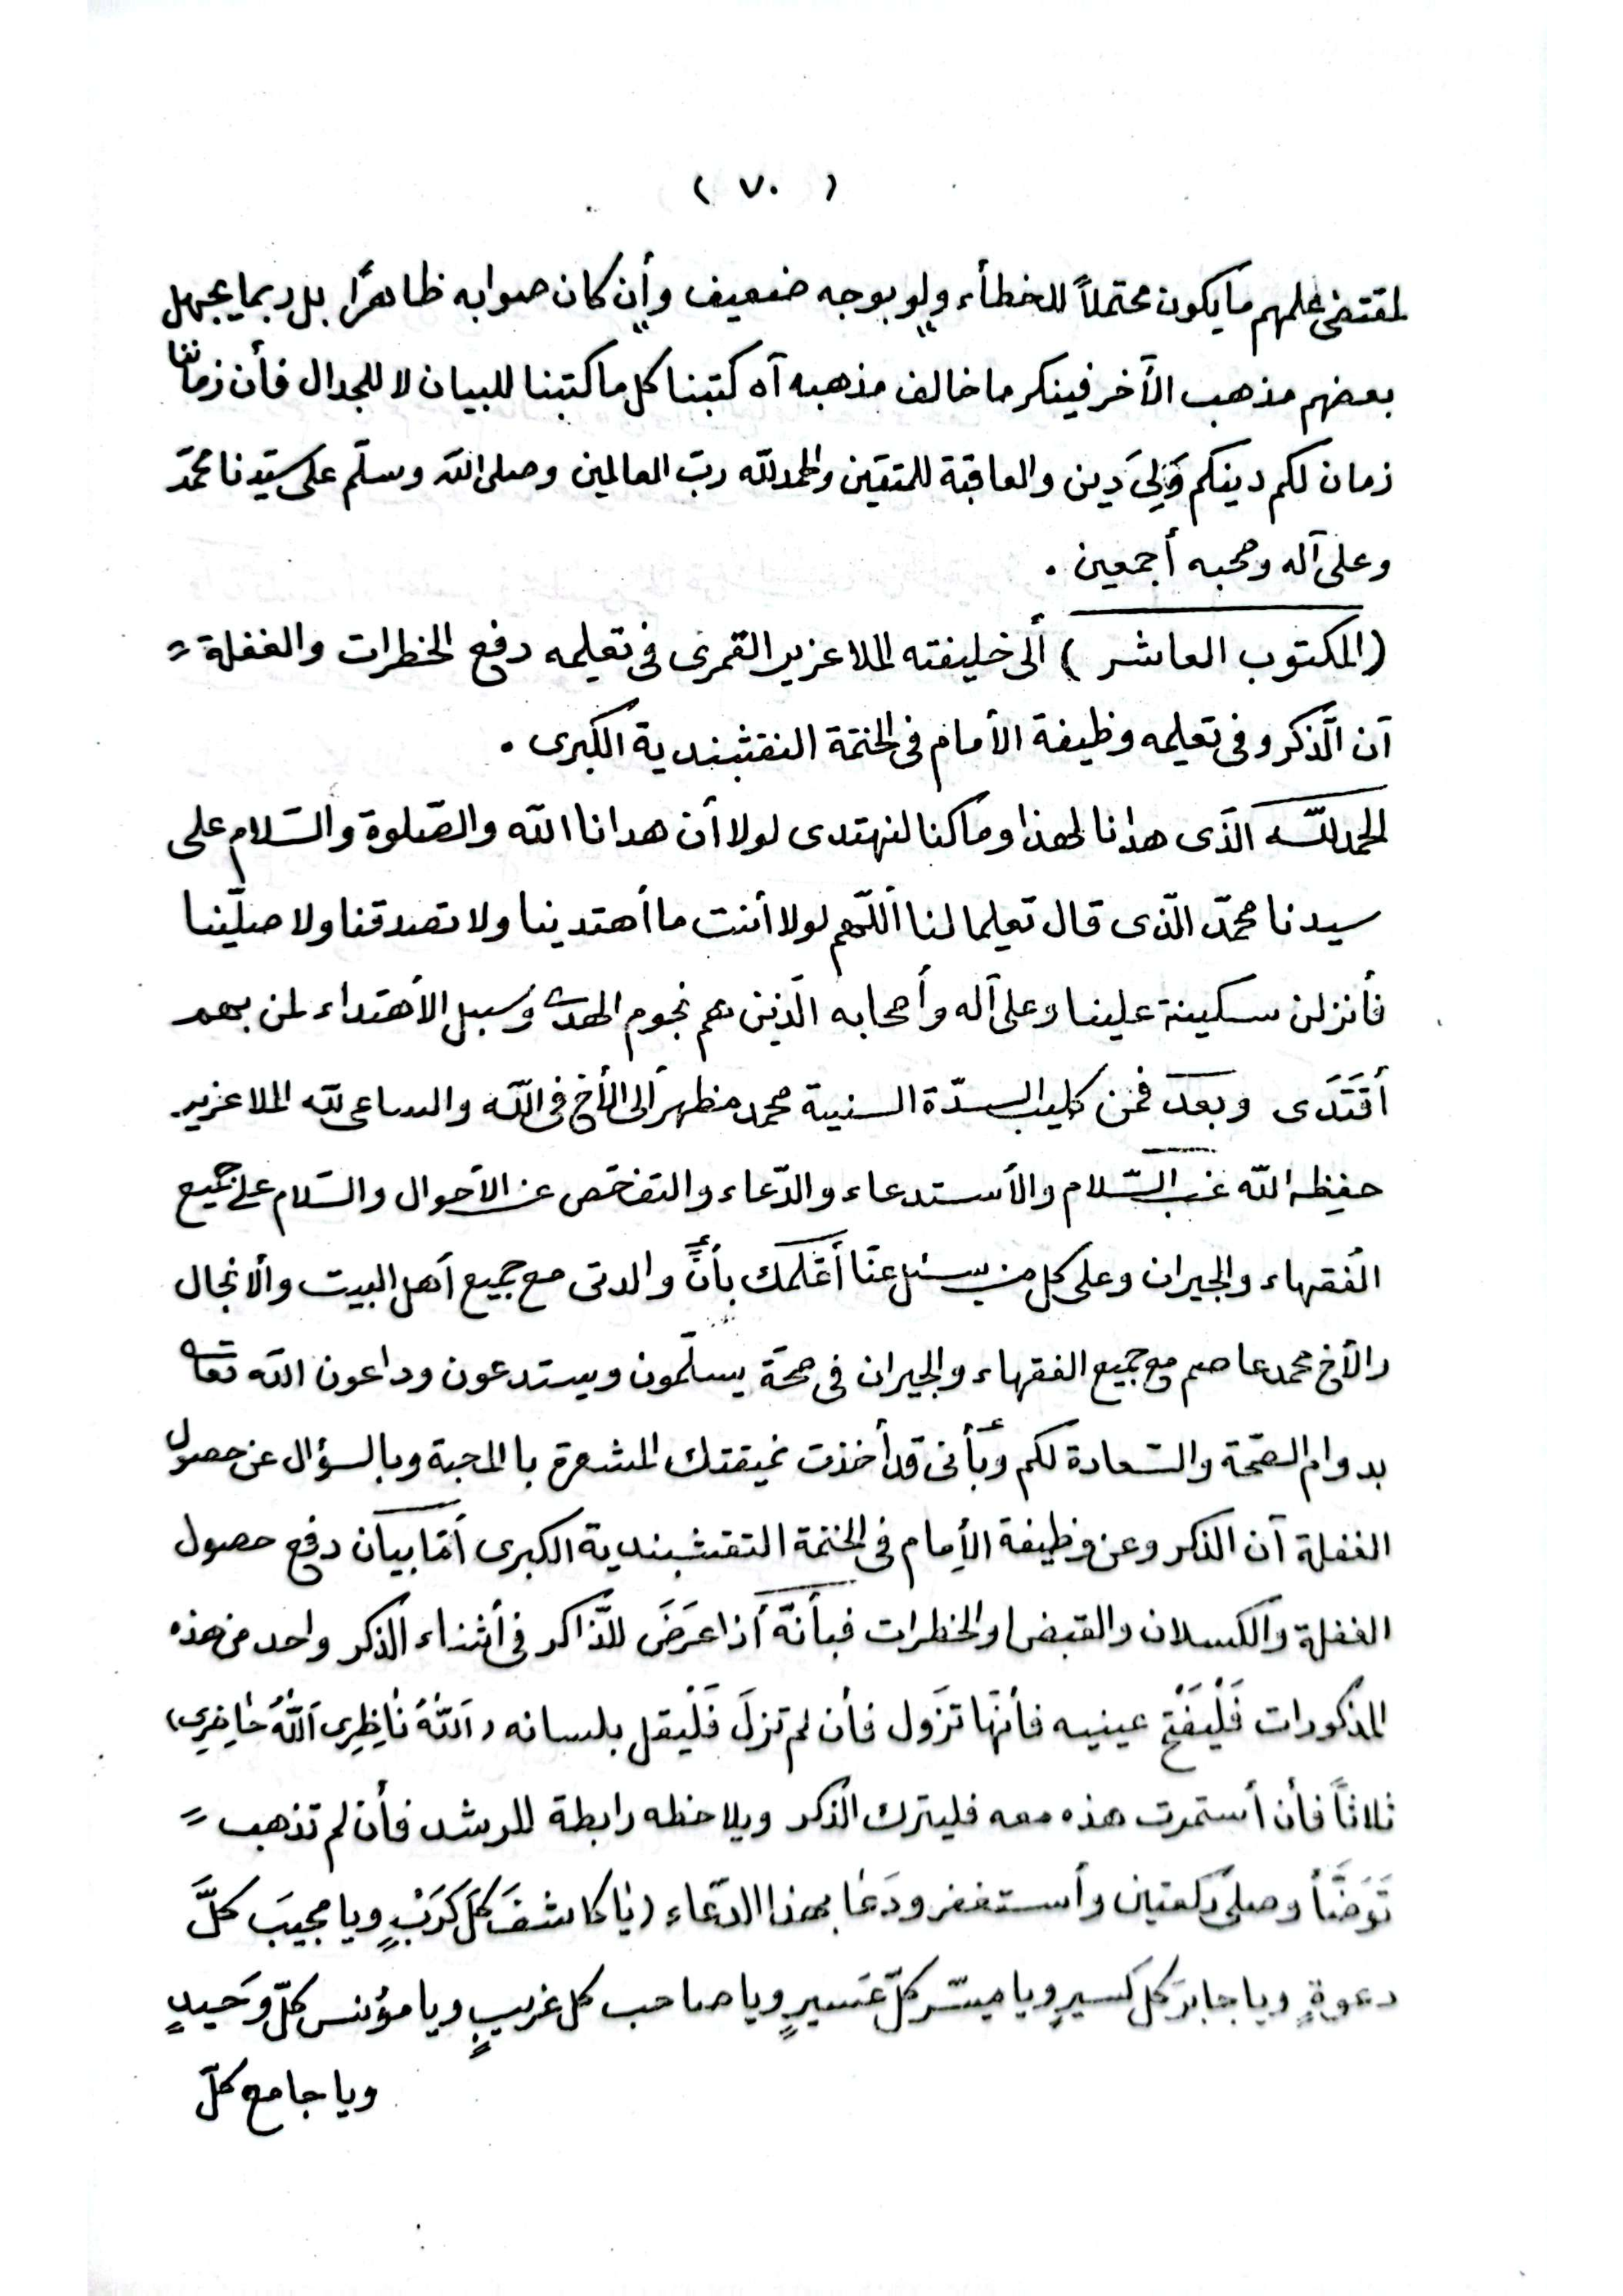 ( ٧٠ )
لمقتضى علمهم ما يكون محتملاً للخطأء ولو بوجه ضعيف وأن كان صوابه ظاهرًا بل ربما يجهل
بعضهم مذهب الآخر فينكر ما خالف مذهبه آه كتبنا كل ما كتبنا للبيان لا للجدال فأن زماننا
زمان لكم دينكم وَلِيَ دين والعاقبة للمتقين والحمدلله ربّ العالمين وصلى الله وسلّم على سيّدنا محمّد
وعلى آله وصحبه أجمعين .
(المكتوب العاشر ) ألى خليفته الملا عزير القمرى فى تعليمه دفع الخطرات والغفلة =
آن الّذكر وفى تعليمه وظيفة الأمام فى الختمة النقثبندية الكبرى .
الحمدللّه الذّى هدانا لهذا وما كنا لنهتدى لولا أن هدانا اللّه والصّلوة والسّلام على
سيدنا محمّد الّذى قال تعليما لنا أللّهم لولا أنت ما أهتدينا ولا تصدقنا ولا صلّينا
فأنزلن سكينة علينا وعلى آله وأصحابه الّذين هم نجوم الهدى وسبيل الأهتداء لمن بهم
أقتَدَى وبعد فمن كليب السدّة السنية محمد مظهر ألى الأخ فى اللّه والساعى للّه الملا عزير
حفِظه اللّه غب السّلام والأستدعاء والدّعاء والتفحّص عن الأحوال والسّلام على جميع
الفقهاء والجيران وعلى كل من سئل عنّا أعْلَمك بأنَّ والدتى مع جميع أهل البيت والأنجال
والأخ محمد عاصم مع جميع الفقهاء والجيران فى صحّة يسلّمون ويستدعون وداعون اللّه تعالى
بدوام الصّحة والسّعادة لكم وبأنى قد أخذت نميقتك المشعرة بالمحبة وبالسؤال عن حصول
الغفلة آن الذكر وعن وظيفة الأمام فى الختمة النقشبندية الكبرى أمّا بيان دفع حصول
الغفلة والكسلان والقبض والخطرات فبأنّه أذا عَرَضَ للذّاكر فى أثناء الّذكر واحد من هذه
المذكورات فَلْيَفْتَح عينيه فأنهّا تزَول فأن لم تزلَ فَلْيَقل بلسانه (اَللّهُ نٰاظِرِى اَللّهُ حٰاضِرِى)
ثلاثاً فأن أستمرت هذه معه فليترك الذّكر ويلاحظه رابطة المرشد فأن لم تذهب =
تَوَضَّأ وصلىّ ركعتين وأستغفر ودَعٰا بهذا الدّعاء (يٰا كاشفَ كلّ كَرَبٍ ويا مجيبَ كلَّ
دعوةٍ ويا جابرَ كل كسيرٍ ويا ميسّر كلّ عَسيرٍ ويا صاحب كل غريبٍ ويا مؤنس كلّ وَحَيدٍ
ويا جامع كلّ